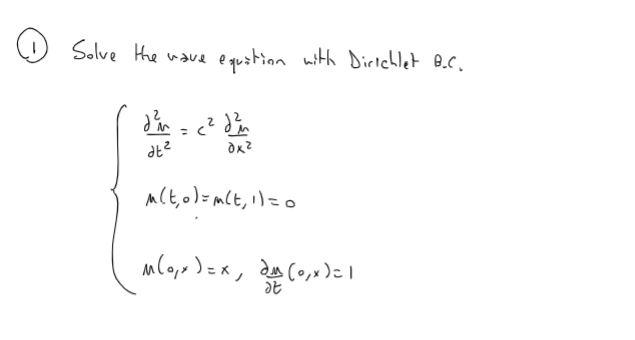 ① Solve the wave equation with Dirichlet B.C.
∂²u/∂t² = c² ∂²u/∂x²
u(t,0)=u(t,1)=0
u(0,x)=x, ∂u/∂t (0,x)=1